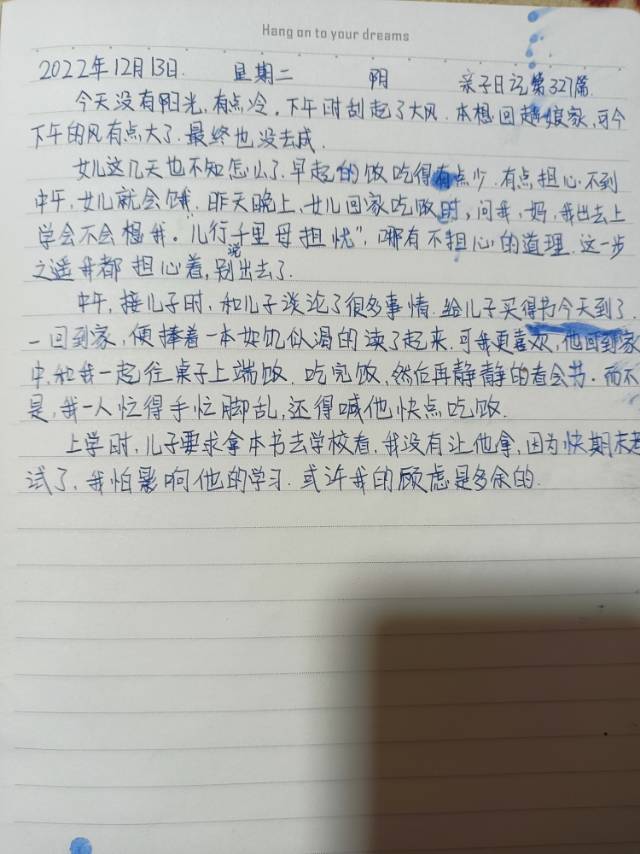 Hang on to your dreams
2022年12月13日. 星期二 阴 亲子日记第327篇
今天没有阳光,有点冷。下午时刮起了大风.本想回趟娘家,可今
下午的风有点大了.最终也没去成.
女儿这几天也不知怎么了.早起的饭吃得有点少.有点担心不到
中午,女儿就会饿.昨天晚上,女儿回家吃饭时,问我,妈,我出去上
学会不会想我。儿行千里母担忧",哪有不担心的道理.这一步
之遥我都担心着,别说出去了.
中午,接儿子时,和儿子谈论了很多事情.给儿子买得书今天到了.
一回到家,便捧着一本如饥似渴的读了起来.可我更喜欢,他回到家
中,和我一起往桌子上端饭.吃完饭,然后再静静的看会书.而不
是,我一人忙得手忙脚乱,还得喊他快点吃饭.
上学时,儿子要求拿本书去学校看,我没有让他拿,因为快期末考
试了,我怕影响他的学习.或许我的顾虑是多余的.